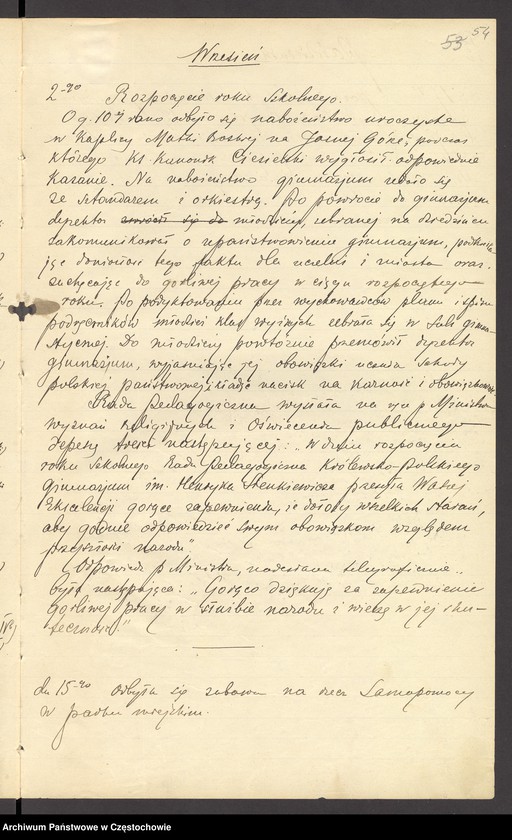 53 54
Wrzesień
2-go Rozpoczęcie roku szkolnego.
O g. 10ej rano odbyło się nabożeństwo uroczyste
w Kaplicy Matki Boskiej na Jasnej Górze, podczas
którego ks. Kanonik Ciesielski wygłosił odpowiednie
kazanie. Na nabożeństwo gimnazjum udało się
ze sztandarem i orkiestrą. Po powrocie do gimnazjum
dyrektor zwrócił się do młodzieży, zebranej na dziedzińcu
zakomunikował o upaństwowieniu gimnazjum, podkreśla-
jąc doniosłość tego faktu dla uczelni i miasta oraz
zachęcając do gorliwej pracy w ciągu rozpoczętego
roku. Po podyktowaniu przez wychowawców planu i spisu
podręczników młodzież klas wyższych zebrała się w sali gimna-
stycznej. Do młodzieży powtórnie przemówił dyrektor
gimnazjum, wyjaśniając jej obowiązki ucznia szkoły
polskiej państwowej i kładąc nacisk na karność i obowiązkowość.
Rada Pedagogiczna wysłała na ręce p. Ministra
wyznań religijnych i Oświecenia publicznego
depeszę treści następującej: "W dniu rozpoczęcia
roku szkolnego Rada Pedagogiczna Królewsko-Polskiego
gimnazjum im. Henryka Sienkiewicza przesyła Waszej
Ekscelencji gorące zapewnienia, że dołoży wszelkich starań,
aby godnie odpowiedzieć swym obowiązkom względem
przyszłości narodu".
Odpowiedź p. Ministra, nadesłana telegraficznie
była następująca: "Gorąco dziękuję za zapewnienie
gorliwej pracy w służbie narodu i wierzę w jej sku-
teczność."
dn 15-go odbyła się zabawa na rzecz Samopomocy
w parku miejskim.
Archiwum Państwowe w Częstochowie